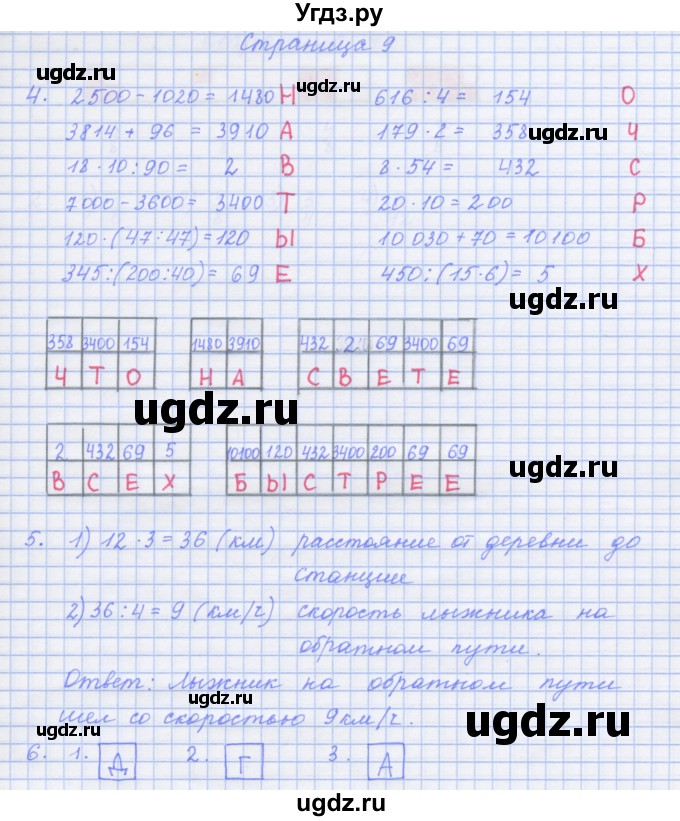 Угдз.ру
Страница 9
ugdz.ru
ugdz.ru
4. 2500 - 1020 = 1480 Н 616 : 4 = 154 О
3814 + 96 = 3910 А 179 · 2 = 358 Ч
ugdz.ru
18 · 10 : 90 = 2 В 8 · 54 = 432 С
7000 - 3600 = 3400 Т 20 · 10 = 200 Р
120 · (47 : 47) = 120 Ы 10 030 + 70 = 10100 Б
345 : (200 : 40) = 69 Е 450 : (15 · 6) = 5 Х
ugdz.ru
358 3400 154 1480 3910 432 2 69 3400 69
Ч Т О Н А С В Е Т Е
ugdz.ru
2 432 69 5 10100 120 432 3400 200 69 69
В С Е Х Б Ы С Т Р Е Е
5. 1) 12 · 3 = 36 (км) расстояние от деревни до
станции
2) 36 : 4 = 9 (км/ч) скорость лыжника на
обратном пути.
Ответ: Лыжник на обратном пути
ugdz.ru
шел со скоростью 9 км/ч.
ugdz.ru
ugdz.ru
6. 1. Д 2. Г 3. А
ugdz.ru